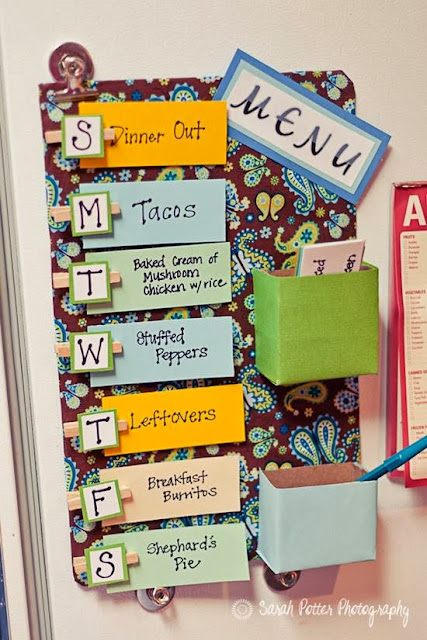 MENU
S
Dinner Out
M
Tacos
T
Baked Cream of
Mushroom
Chicken w/rice
W
Stuffed
Peppers
T
Leftovers
F
Breakfast
Burritos
S
Shephard's
Pie
A
FRUITS
VEGETABLES
Sarah Potter Photography